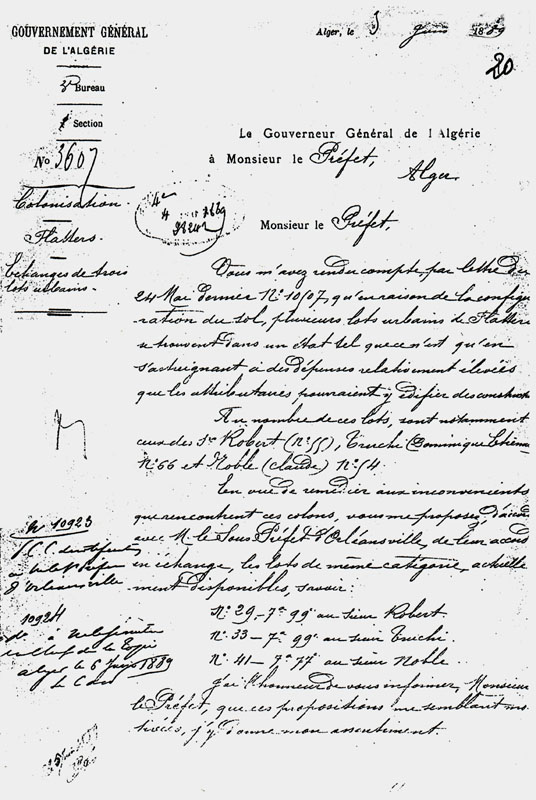 GOUVERNEMENT GÉNÉRAL
DE L'ALGÉRIE
3e Bureau
1e Section
No 3607
Colonisation.
Flatters.
Echanges de trois
lots urbains.
Alger, le 3 Juin 1889
20
Le Gouverneur Général de l'Algérie
à Monsieur le Préfet,
Alger
Monsieur le Préfet,
Vous m'avez rendu compte, par lettre du
24 Mai dernier No 1007, qu'en raison de la configu
ration du sol, plusieurs lots urbains de Flatters
se trouvent dans un état tel que ce n'est qu'en
s'astreignant à des dépenses relativement élevées
que les attributaires pourraient y édifier des constructions
Au nombre de ces lots, sont notamment
ceux des Srs Robert (No 55), Truchi (Dominique Etienne
No 66 et Noble (Claude) No 54
En vue de remédier aux inconvénients
que rencontrent ces colons, vous me proposez, d'accord
avec M. le Sous Préfet d'Orléansville, de leur accorder
en échange, les lots de même catégorie, actuelle
ment disponibles, savoir:
No 29 – 7a 99c au sieur Robert.
No 33 – 7a 99c au sieur Truchi.
No 41 – 7a 77 au sieur Noble.
J'ai l'honneur de vous informer, Monsieur
le Préfet, que ces propositions me semblant mo
tivées, j'y donne mon assentiment
No 10923
d'Orléansville
10924
Alger le 6 Juin 1889